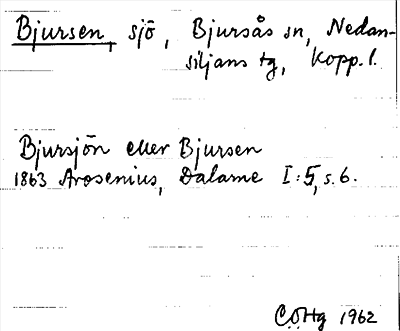 Bjursen, sjö, Bjursås sn, Nedan-
siljans tg, Kopp. l.
Bjursjön eller Bjursen
1863 Arosenius, Dalarne I:5, s. 6.
C.O.Hg 1962